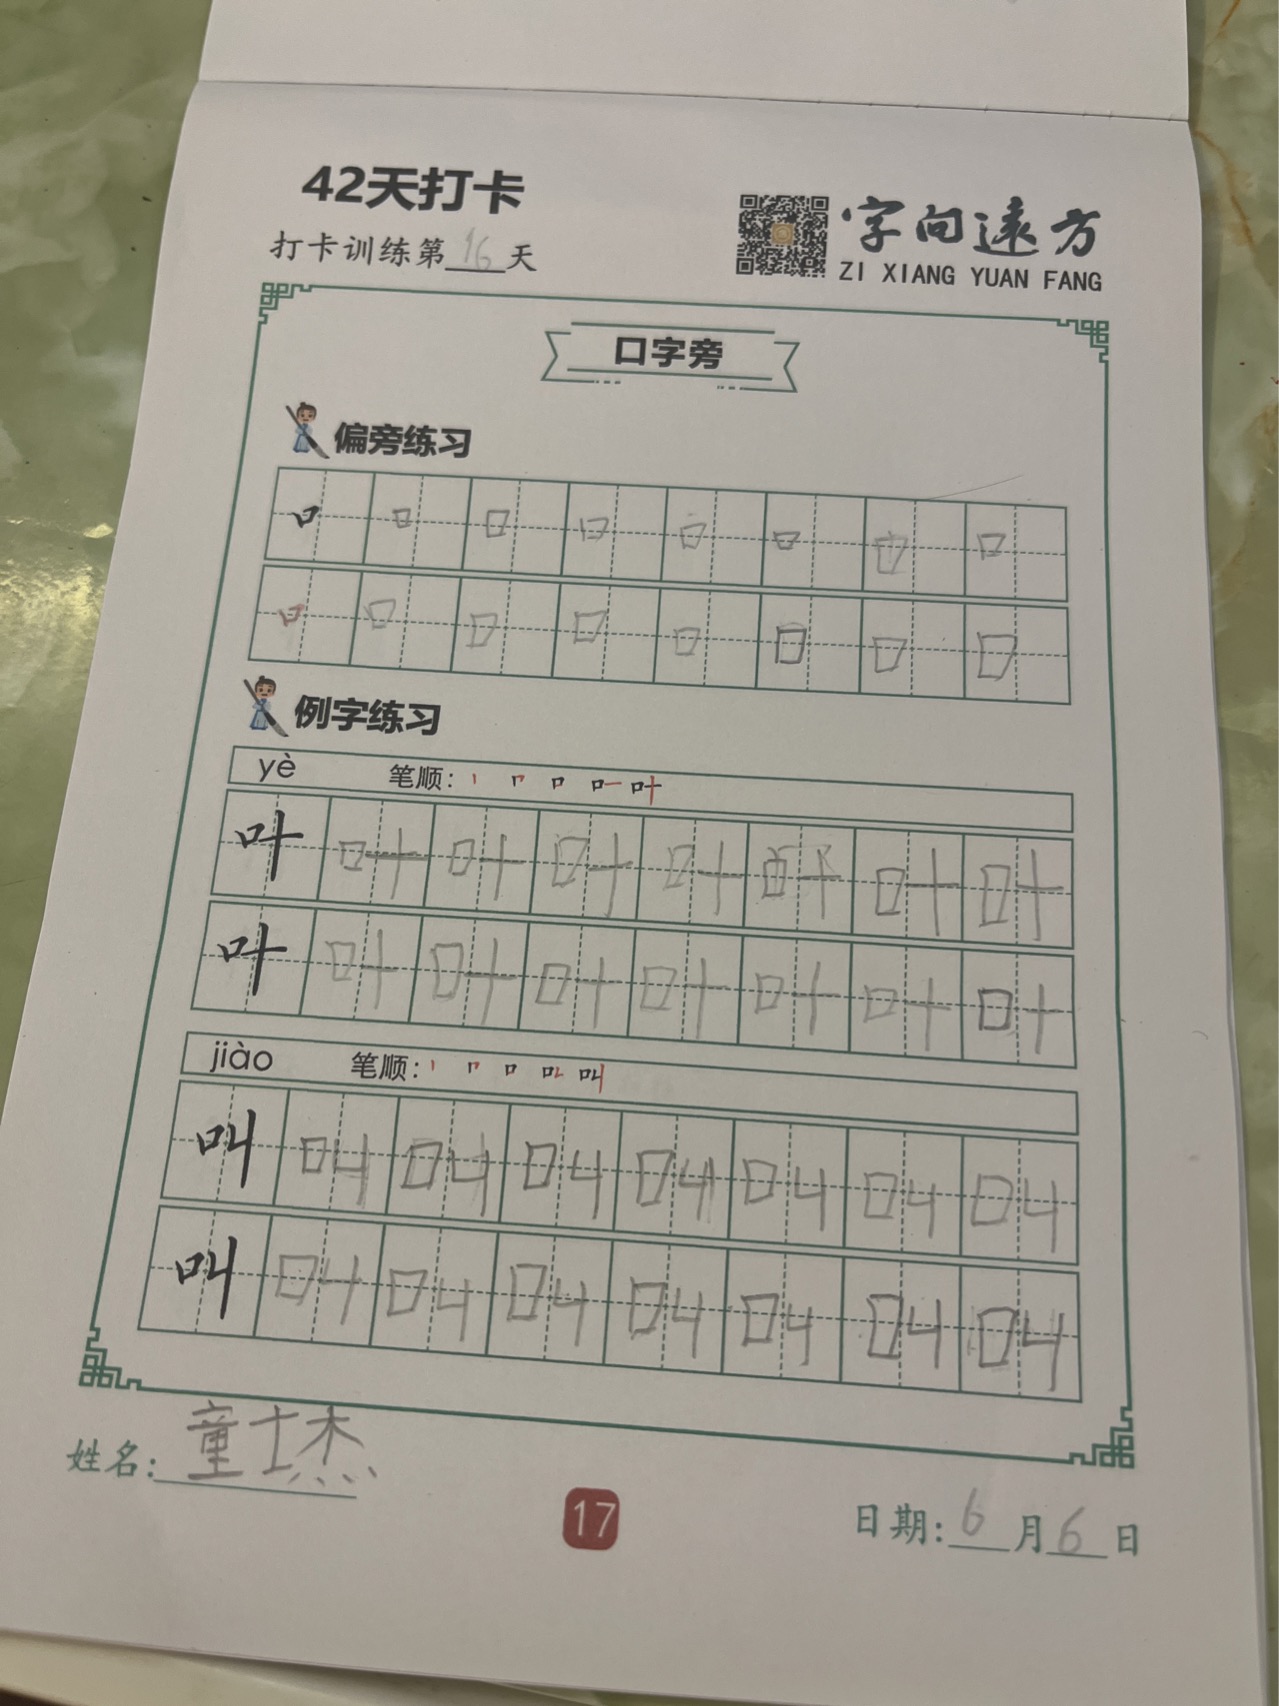 42天打卡
打卡训练第16天
字向远方
ZI XIANG YUAN FANG
口字旁
偏旁练习
口 口 口 口 口 口 口 口
口 口 口 口 口 口 口 口
例字练习
yè 笔顺: 丨 𠃍 口 口一 叶
叶 叶 叶 叶 叶 叶 叶 叶
叶 叶 叶 叶 叶 叶 叶 叶
jiào 笔顺: 丨 𠃍 口 叫
叫 叫 叫 叫 叫 叫 叫 叫
叫 叫 叫 叫 叫 叫 叫 叫
姓名: 童士杰
17
日期: 6月6日